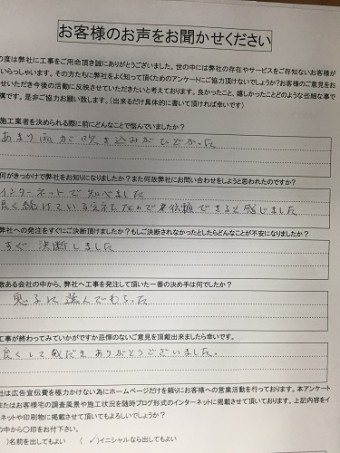 お客様のお声をお聞かせください
の度は弊社に工事をご用命頂き誠にありがとうございました。世の中には弊社の存在やサービスをご存知ないお客様が
いらっしゃいます。その方たちに弊社をよく知って頂くためのアンケートにご協力頂けないでしょうか?お客様のご意見をお
せいただき今後の活動に反映させていただきたいと考えております。良かったこと、嬉しかったことどのような些細な事で
構です。是非ご協力お願い致します。(出来るだけ具体的に書いて頂ければ幸いです)
施工業者を決められる際に前にどんなことで悩んでいましたか?
あまり雨が吹き込みがひどかった
何がきっかけで弊社をお知りになりましたか?また何故弊社にお問い合わせをしようと思われたのですか?
インターネットで知べました
長く続けている会社なので信頼できると感じました
弊社への発注をすぐにご決断頂けましたか?もしご決断されなかったとしたらどんなことが不安になりましたか?
すぐ決断しました
数ある会社の中から、弊社へ工事を発注して頂いた一番の決め手は何でしたか?
息子に選んでもらった
工事が終わってみていかがですか忌憚のないご意見を頂戴出来ましたら幸いです。
良くして戴だきありがとうございました。
社は広告宣伝費を極力かけない為にホームページだけを頼りにお客様への営業活動を行っております。本アンケート
またはお客様宅の調査風景や施工状況を随時ブログ形式のインターネットに掲載させて頂いております。上記内容をイ
ネットや印刷物に掲載させて頂いてもよろしいでしょうか?
の中から〇印をお付下さい。
)名前を出してもよい (✓)イニシャルなら出してもよい